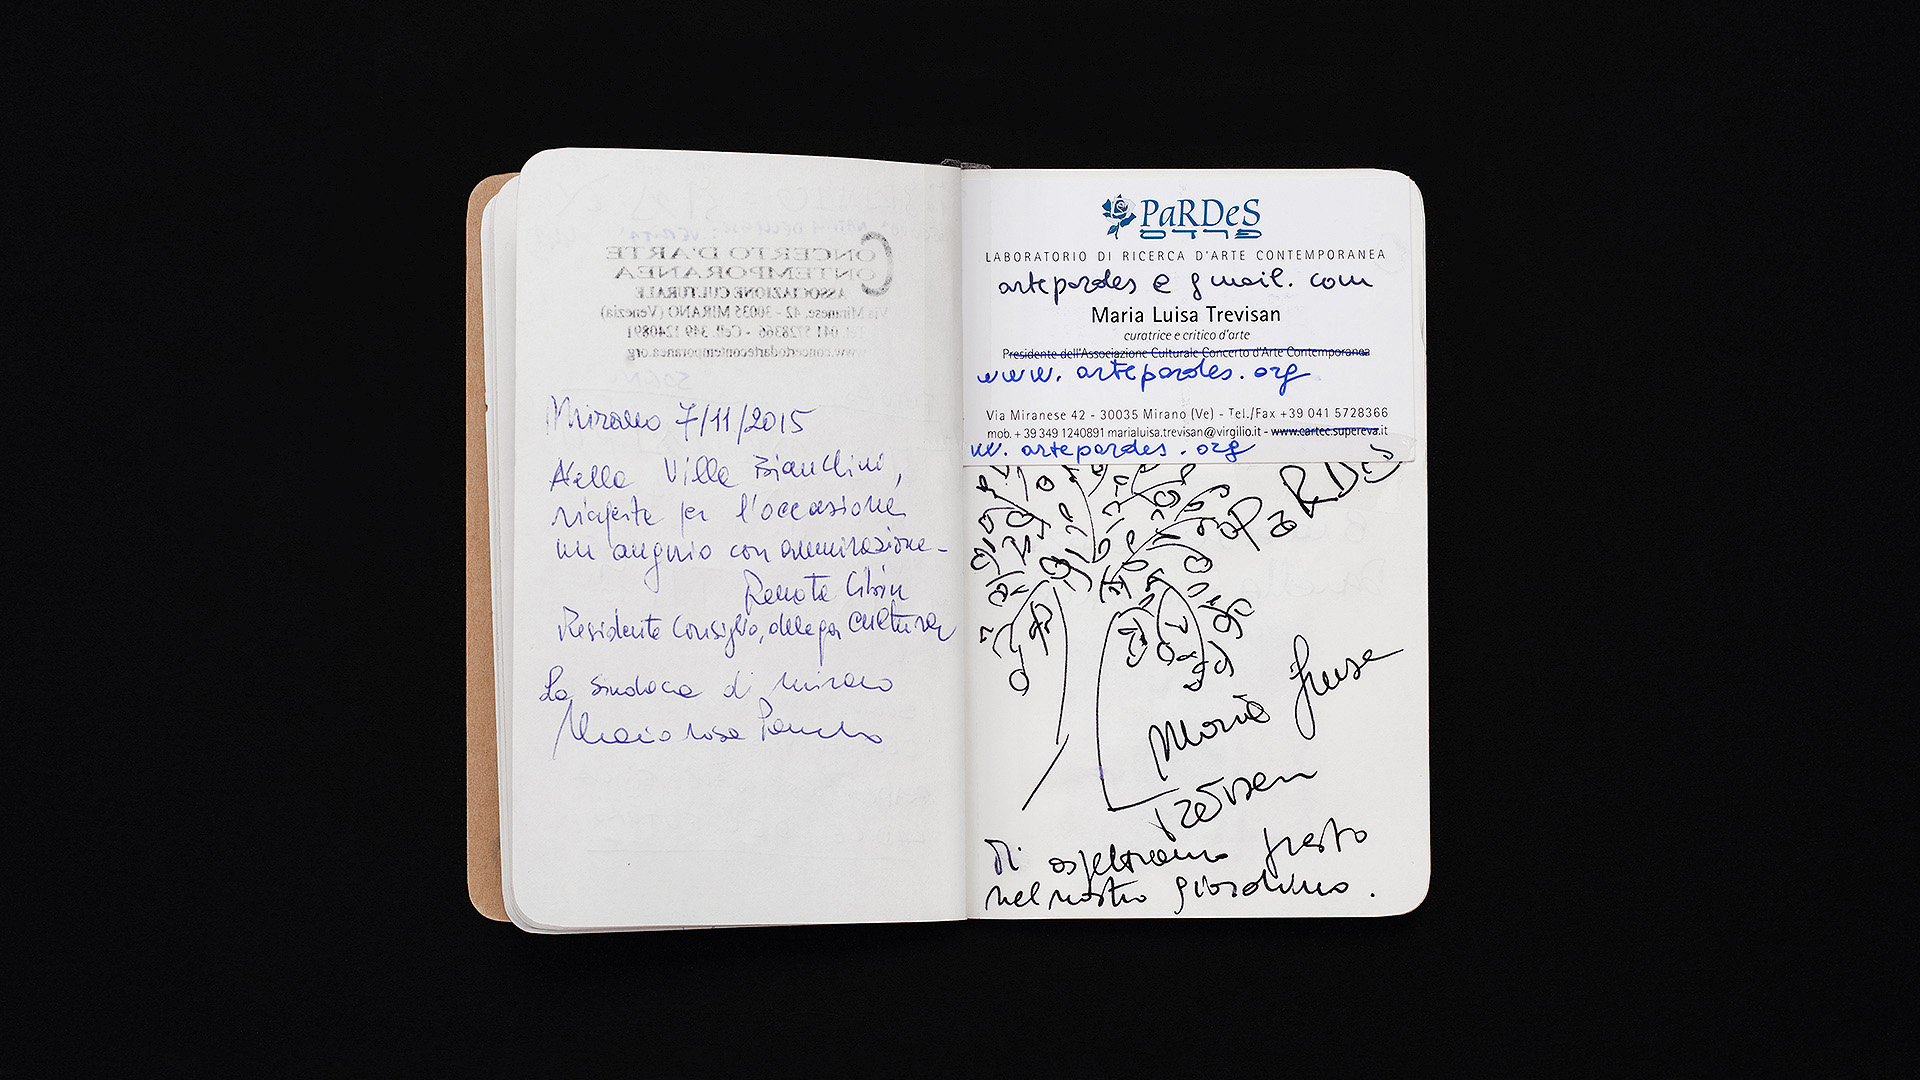 Mirano 7/11/2015
Nella Villa Bianchini,
riaperta per l'occasione
un augurio con ammirazione-
Renata Cibin
Presidente Consiglio, delega cultura
La sindaca di Mirano
Maria Rosa
PaRDeS
פרדס
LABORATORIO DI RICERCA D'ARTE CONTEMPORANEA
artepardes @ gmail.com
Maria Luisa Trevisan
curatrice e critico d'arte
Presidente dell'Associazione Culturale Concerto d'Arte Contemporanea
www.artepardes.org
Via Miranese 42 - 30035 Mirano (Ve) - Tel./Fax +39 041 5728366
mob. + 39 349 1240891 marialuisa.trevisan@virgilio.it - www.cartec.supereva.it
w. artepardes.org
PaRDeS
Maria Luisa
Trevisan
Ti aspettiamo presto
nel nostro giardino.
CONCERTO D'ARTE
CONTEMPORANEA
ASSOCIAZIONE CULTURALE
Via Miranese, 42 - 30035 MIRANO (Venezia)
Tel. 041 5728366 - Cell. 349 1240891
www.concertodartecontemporanea.org